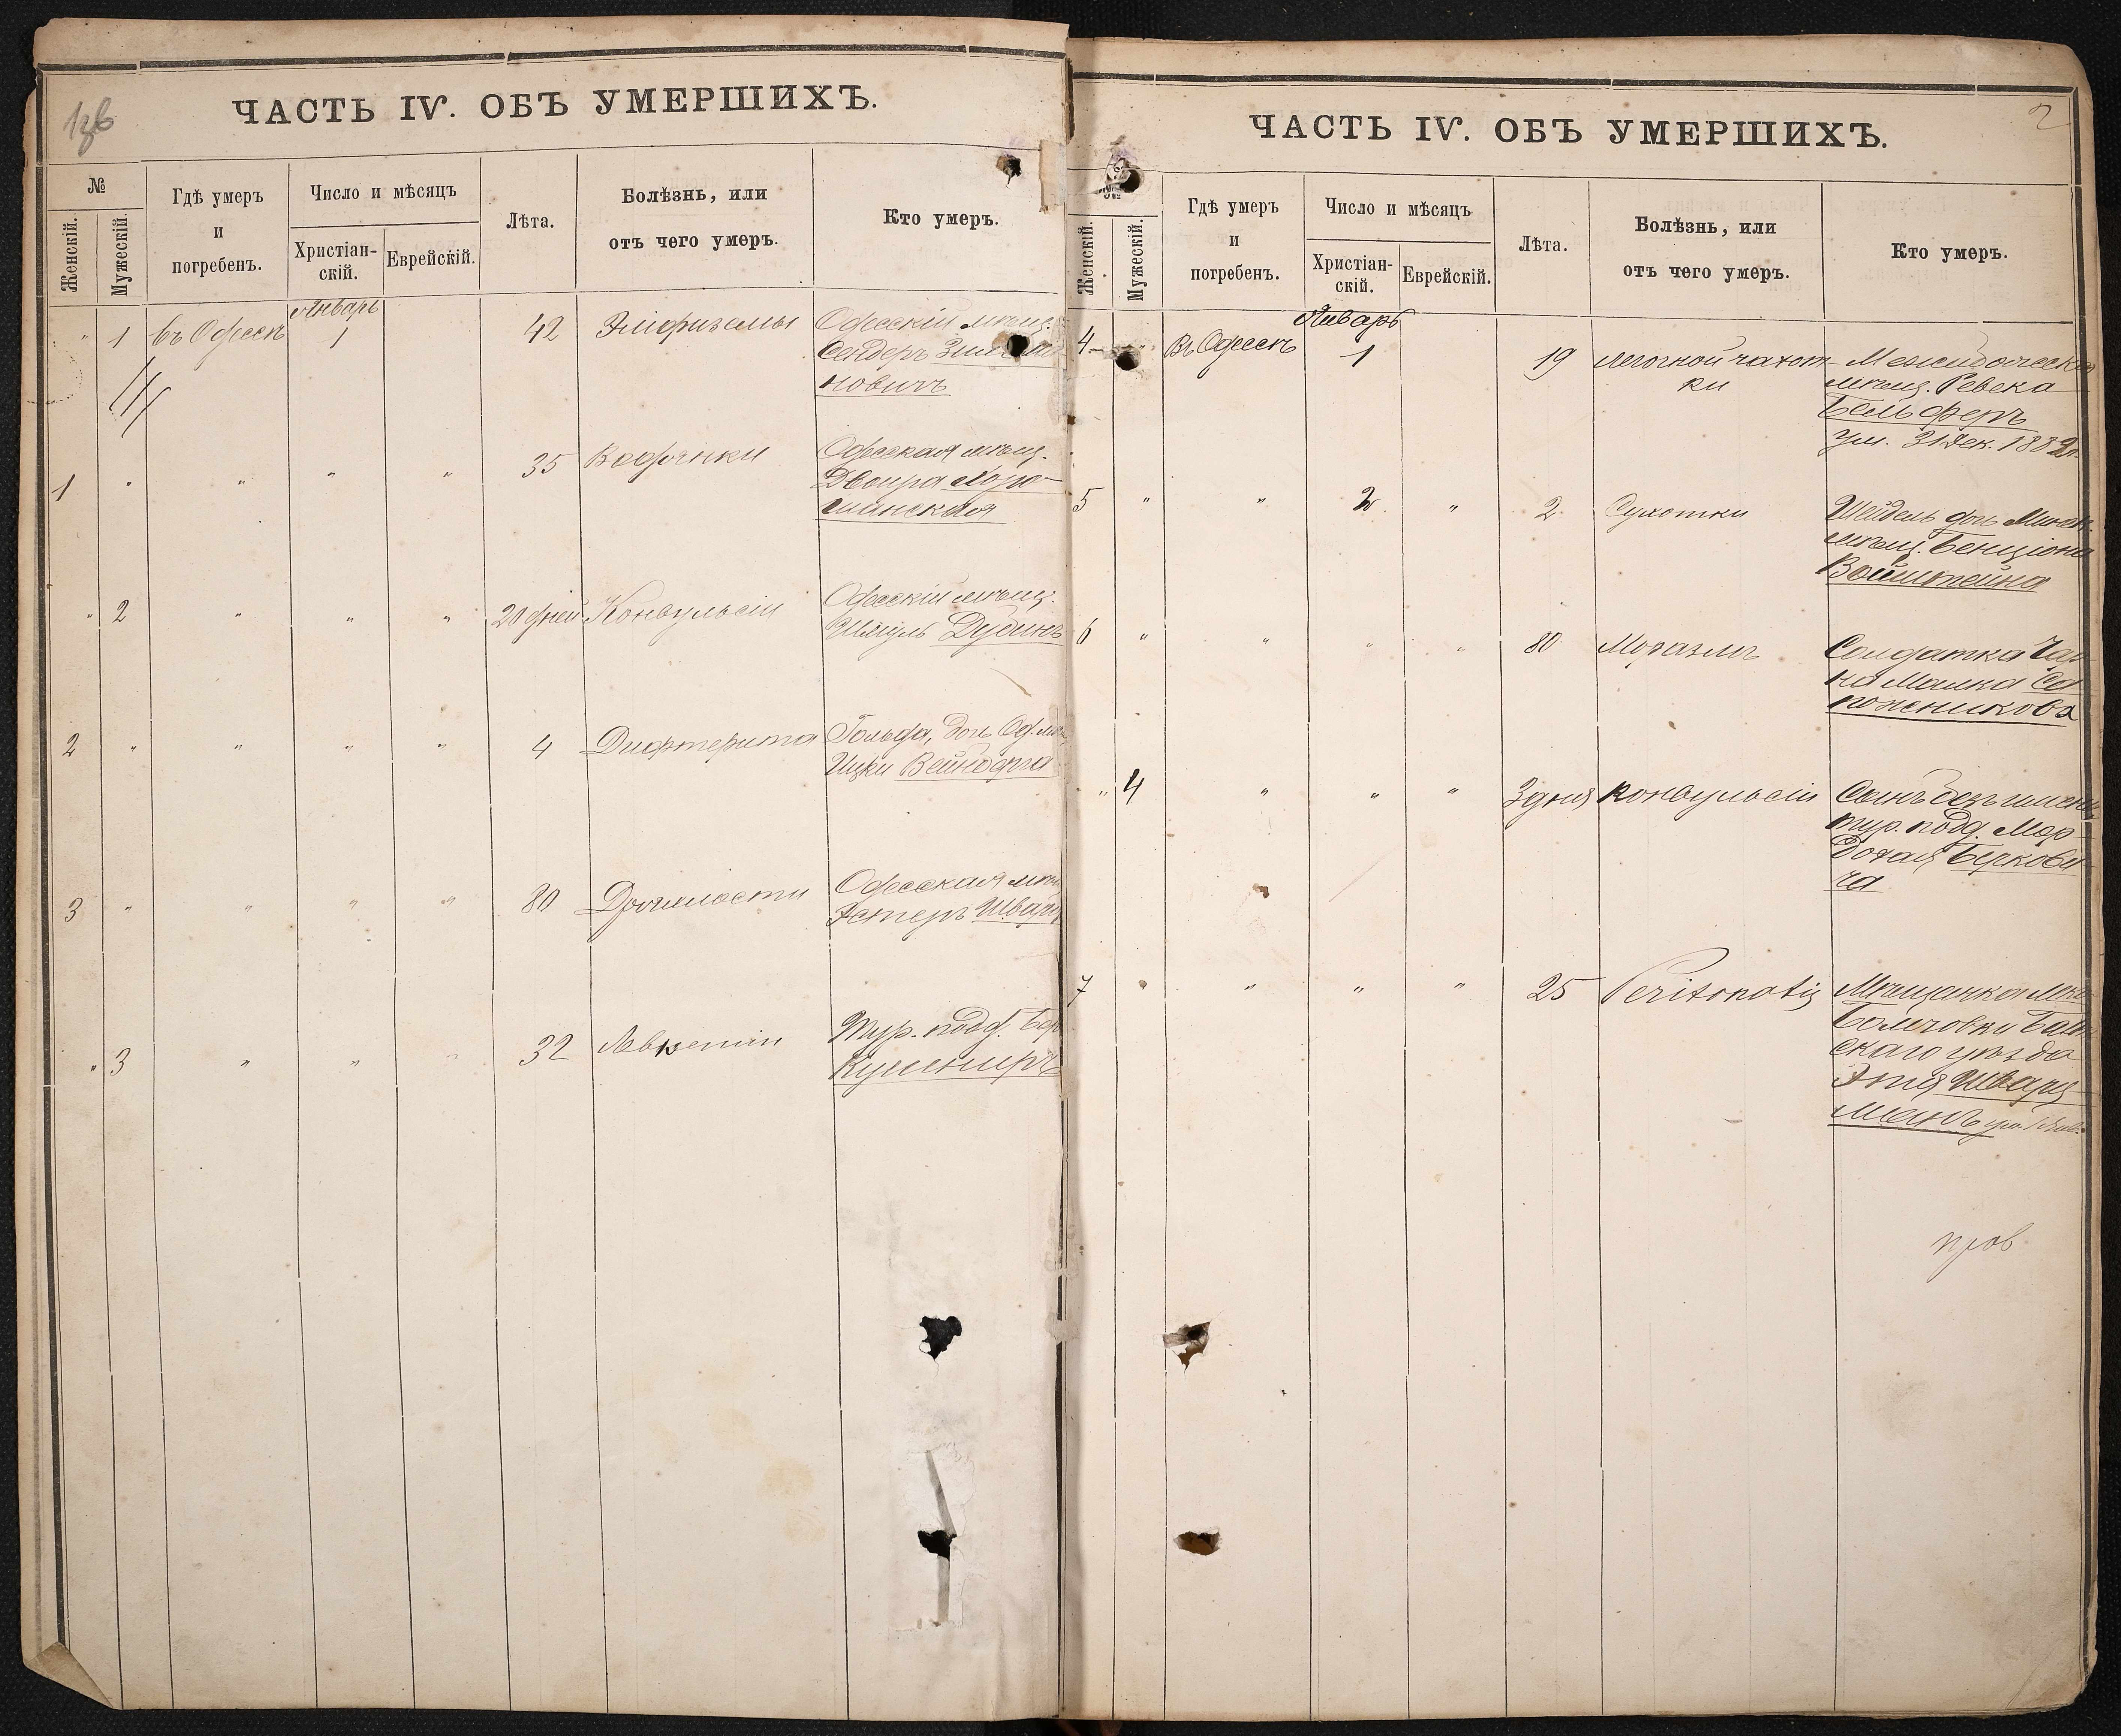 136
ЧАСТЬ IV. ОБЪ УМЕРШИХЪ.
№
Женскій.
Мужескій.
Гдѣ умеръ
и
погребенъ.
Число и мѣсяцъ
Христіан-
скій.
Еврейскій.
Лѣта.
Болѣзнь, или
отъ чего умеръ.
Кто умеръ.
Январь
" 1 въ Одессѣ 1 42 Эмфиземы Одесскій мѣщ.
Сендеръ
новичъ
1 " " " " 35 Водянки Одесская мѣщ.
Двойра Хоро-
шанская
" 2 " " " 20 дней Конвульсіи Одесскій мѣщ.
Шмуль Дубинъ
2 " " " " 4 Дифтерита Гольда, дочь Од. мѣ
Ицки Вейнберга
3 " " " " 80 Дряхлости Одесская мѣщ
Эстеръ Шварц
" 3 " " " 32 Тур. подд. Бер
Кушниръ
2
ЧАСТЬ IV. ОБЪ УМЕРШИХЪ.
Женскій.
Мужескій.
Гдѣ умеръ
и
погребенъ.
Число и мѣсяцъ
Христіан-
скій.
Еврейскій.
Лѣта.
Болѣзнь, или
отъ чего умеръ.
Кто умеръ.
Январь
4 " Въ Одессѣ 1 19 Легочной чахот-
ки
мѣщ. Ревека
Бельферъ
ум. 31 Дек. 1882
5 " " 2 " 2 Сухотки Шейдель дочь
мѣщ. Бенціона
Вайнштейна
6 " " " " 80 Маразмъ Солдатка Чар-
на Малка Са
пожникова
" 4 " " " 3 дня Конвульсіи Сынъ безъ имени
тур. подд. Мор-
духая Беркови-
ча
7 " " " " 25 Peritonatis Мѣщанка
Балт
скаго уѣзда
Этя Шварц-
манъ
пров